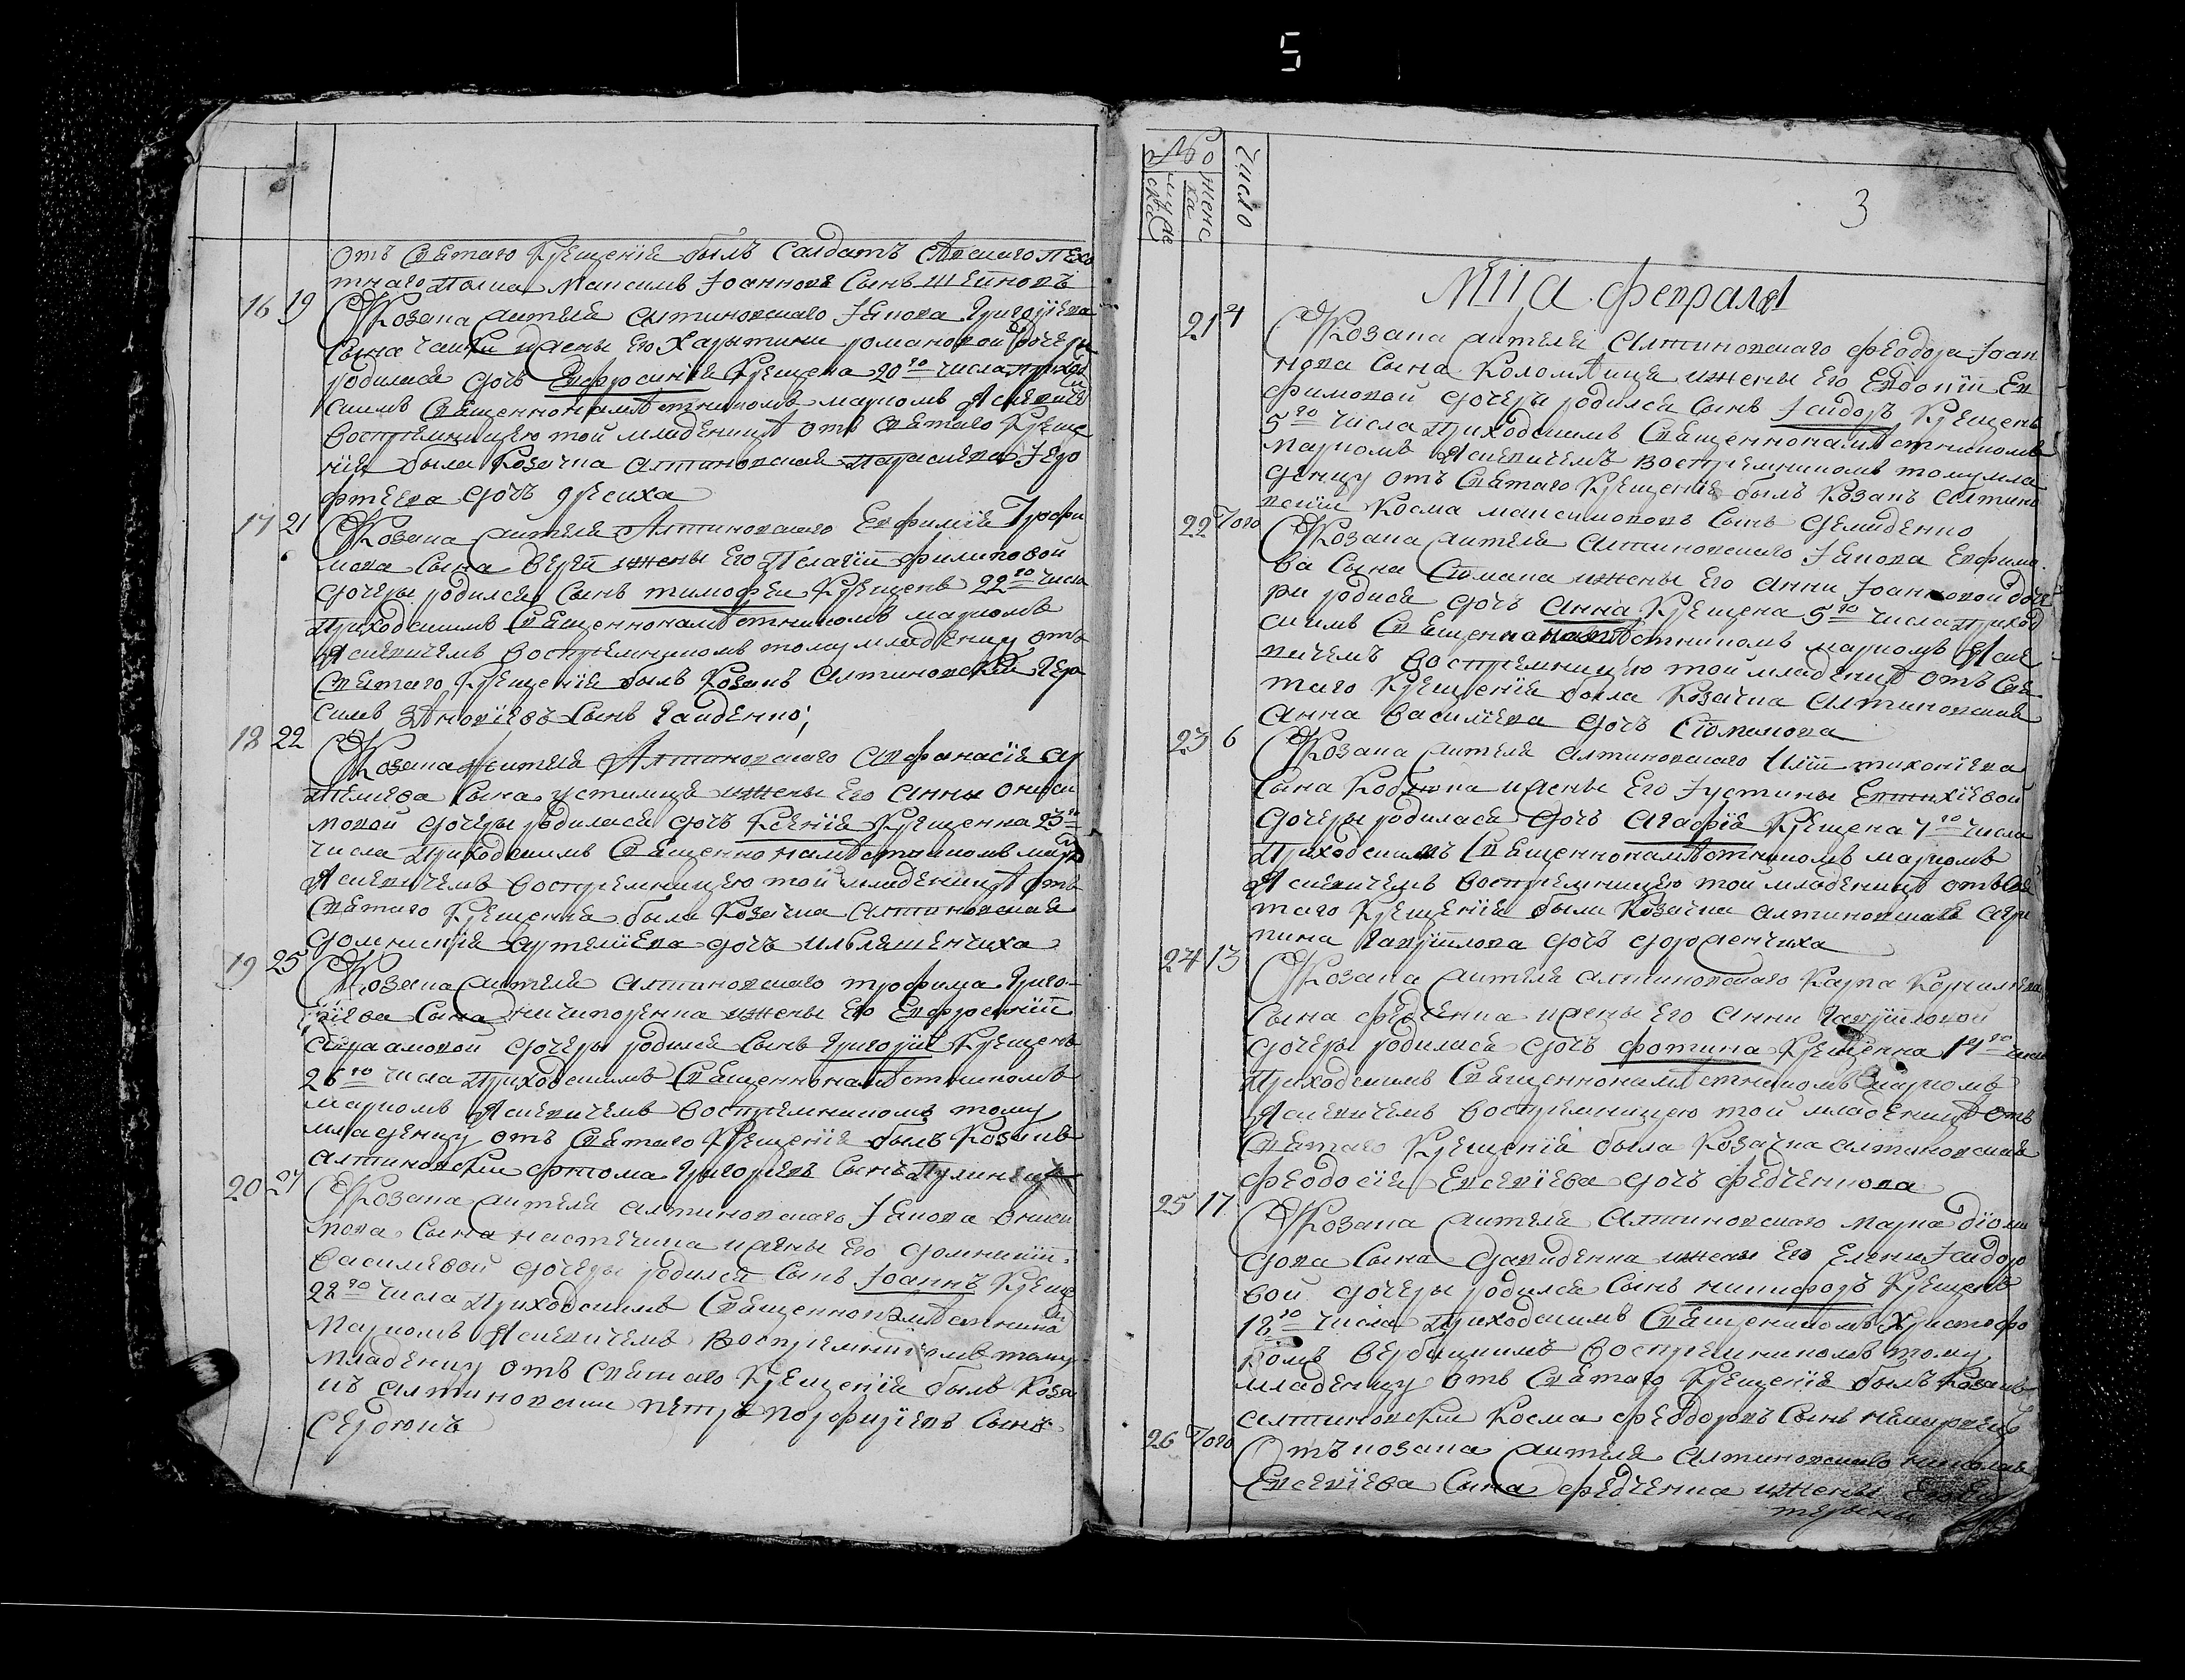 5
отъ святаго крещенія былъ салдатъ пехо
тнаго полка Максимъ Іоанновъ сынъ
16 19 У козака жителя алтиновскаго Іякова Григоріева
сына жены его Харытини романовой дочеры
родилася дочь Евфросинія крещена 20го числа приход
скимъ священнонамѣстникомъ маркомъ Ясневиче
воспріемницею той младеницѣ отъ святаго креще
нія была козачка алтиновская параскева Іеро
фтеева дочь
17 21 У козака жителя Алтиновскаго Евфимія Трофи
мова сына жены его Пелагіи филиповой
дочеры родился сынъ тимофеи крещенъ 22го числа
приходскимъ священнонамѣстникомъ маркомъ
Ясневичемъ воспріемникомъ тому младенцу отъ
святаго крещенія былъ козакъ алтиновскій Гера
симъ Зѣновіевъ сынъ Гайденко;
18 22 У козака жителя Алтиновскаго Афанасія
сына устимця жены его Анны Ониси
мовой дочеры родилася дочь Ксенія крещенна 23го
числа приходскимъ священнонамѣстникомъ марко
Ясневичемъ воспріемницею той младеницѣ отъ
святаго крещенія была козачка алтиновская
домникія артеміева дочь ильяшенчиха
19 25 У козака жителя алтиновскаго трофима Григо-
ріева сына ничипоренка жены его Евфросиніи
Авраамовой дочеры родился сынъ Григорій крещенъ
26го числа приходскимъ священнонамѣстникомъ
маркомъ Ясневичемъ воспріемникомъ тому
младенцу отъ святаго крещенія былъ козакъ
алтиновскій артома Григоріевъ сынъ
20 27 У козака жителя алтиновскаго Іякова
сына жены его домникіи
василіевой дочеры родился сынъ Іоаннъ креще
28го числа приходскимъ священнонамѣстнико
маркомъ Ясневичемъ воспріемникомъ тому
младенцу отъ святаго крещенія былъ коза
къ алтиновскій петръ порфиріевъ сынъ
Сердюкъ
№ Число
мужеска женска
3
Мца февраля
21 4 У козака жителя Алтиновскаго феодора Іоан
нова сына Коломѣйця жены его Евдокіи Ев
фимовой дочеры родился сынъ Ісидоръ крещенъ
5го числа приходскимъ священнонамѣстникомъ
маркомъ Ясневичемъ воспріемникомъ тому мла
денцу отъ святаго крещенія былъ козакъ алтино
вскій косма максимовичъ сынъ Демиденко
22 Того У козака жителя алтиновскаго Іякова Евфимо
ва сына жены его анни Іоанновой доче
ри родися дочь Анна крещена 5го числа приход
скимъ священнонамѣстникомъ маркомъ Ясне
вичемъ воспріемницею той младеницѣ отъ свя
таго крещенія была козачка алтиновская
Анна василіева дочь
23 6 У козака жителя алтиновскаго Иліи тихоніева
сына жены его Іустины Евтихіевой
дочеры родилася дочь Агафія крещена 7го числа
приходскимъ священнонамѣстникомъ маркомъ
Ясневичемъ воспріемницею той младеницѣ отъ свя
таго крещенія была козачка алтиновская агри
пина Гавріилова дочь дорошенчиха
24 13 У козака жителя алтиновскаго Карпа Корниліева
сына федченка жены его Анни Гавріиловой
дочеры родилася дочь фотина крещенна 14го числа
приходскимъ священнонамѣстникомъ маркомъ
Ясневичемъ воспріемницею той младеницѣ отъ
святаго крещенія была козачка алтиновская
феодосія Евсевіева дочь федченкова
25 17 У козака жителя Алтиновскаго марка Діоми
дова сына Давиденка жены его Елены Ісидоро
вой дочеры родился сынъ никифоръ крещенъ
18го числа приходскимъ священникомъ Христофо
ромъ Вербицкимъ воспріемникомъ тому
младенцу отъ святаго крещенія былъ козакъ
алтиновскій косма феодоровъ сынъ
26 Того Отъ козака жителя Алтиновскаго николая
Евсевіева сына федченка жены его Ека
терины